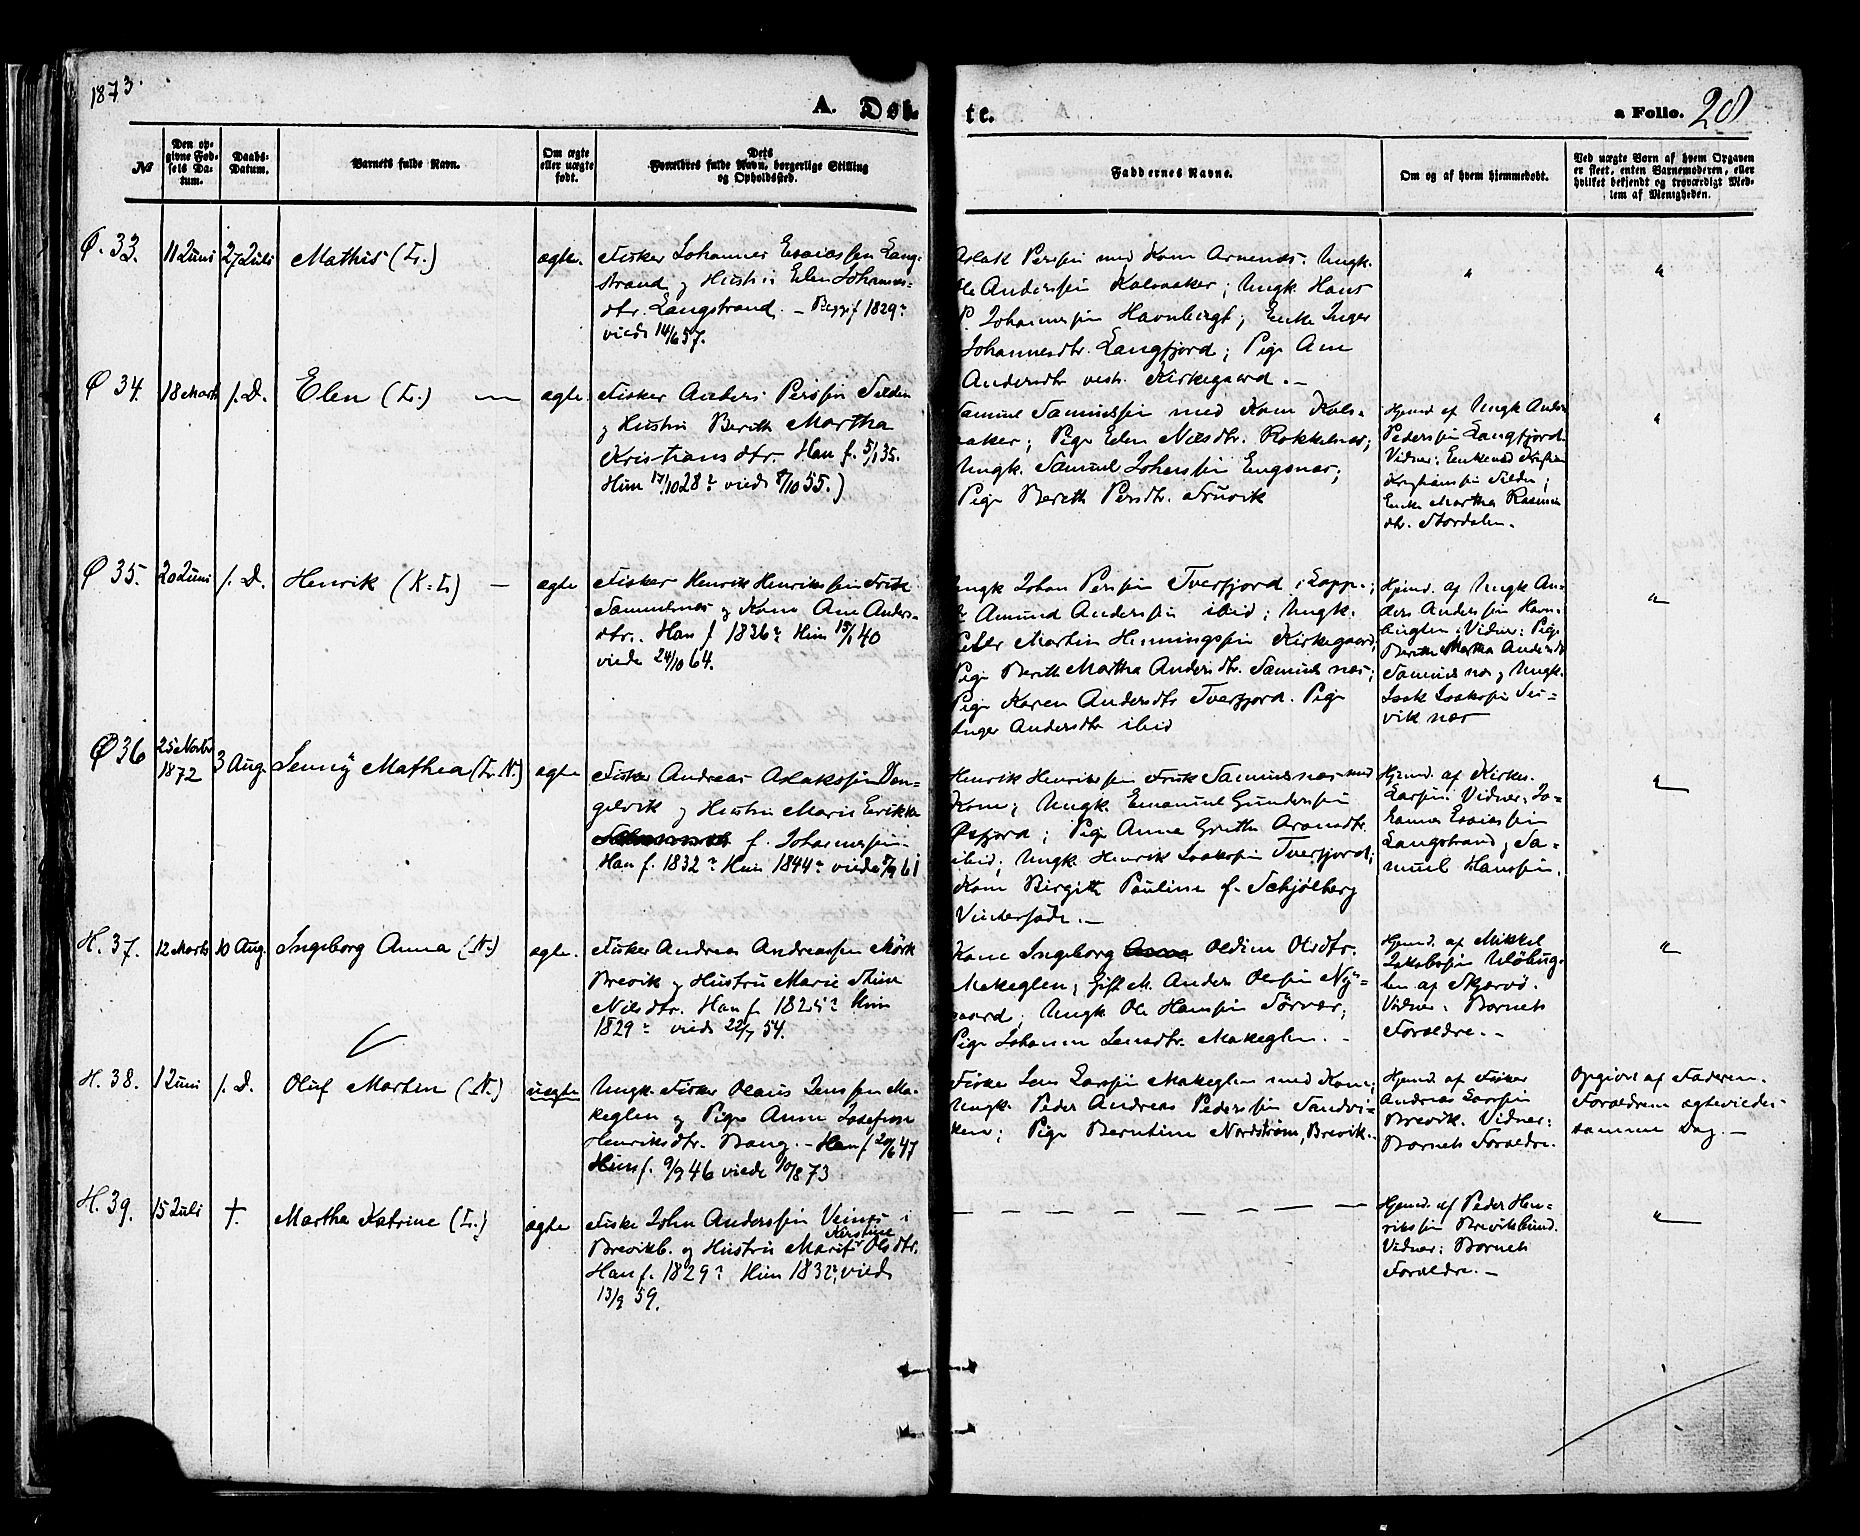 1873.
A. Døb
te.
a Folio. 28
№
Den op-
givne Fød-
sels Da-
tum.
Daabs-
Datum.
Barnets fulde Navn.
Om ægte
eller uægte
født.
Dets
Forældres fulde Navn, borgerlige Stilling
og Opholdssted.
Faddernes Navne.
Om og af hvem hjemmedøbt.
Ved uægte Børn af hvem Opgaven
er skeet, enten Barnemoderen, eller
hvilket bekjendt og troværdigt Med-
lem af Menigheden.
Ø. 33.
11 Juni
27 Juli
Mathis (L.)
ægte.
Fisker Johannes Esaiassen Lang-
strand og Hustru Elen Johannes-
dtr. Langstrand. – Begge f 1829?
viede 14/6 57.
Aslak Persen med Kone Arnenes. Ungk.
Ole Anderssen Kalvaaker; Ungk. Hans
P. Johannessen Havnbugt; Enke Inger
Johannesdtr. Langfjord; Pige Ane
Andersdtr vestr. Kirkegaard. –
"
"
Ø 34.
18 Marts
s. D.
Elen (L.) —
ægte
Fisker Anders Persen Silden
og Hustru Berith Martha
Kristiansdtr. Han f. 5/1 35.
Hun 17/10 28? viede 8/10 55.)
Samuel Samuelsen med Kone Kalv-
aaker; Pige Elen Nilsdtr. Rokkelnes;
Ungk. Samuel Johansen Engsnes;
Pige Berith Persdtr. Fruvik
Hjemd. af Ungk Anders
Pederssen Langfjord.
Vidner: Enkemd Kristian
Kristiansen Silden;
Enke Martha Rasmus
dtr. Stordalen.
"
Ø 35.
20 Juni
s. D.
Henrik (K-L) —
ægte
Fisker Henrik Henrikssen Frisk
Samuelnes og Kone Ane Anders-
dtr. Han f 1836? Hun 15/1 40
viede 24/10 64.
Ungk Johan Perssen Tverfjord i Lopp.;
Amund Anderssen ibid; Ungk.
Peder Martin Henningssen Kirkegaard;
Pige Berith Martha Andersdtr. Samuelnes;
Pige Karen Andersdtr Tverfjord. Pige
Inger Andersdtr ibid
Hjemd. af Ungk An-
ders Anderssen Havn-
bugten. Vidner: Pige
Berith Martha Andersdtr
Samuelnes og Ungk.
Isak Isakssen Sis-
vik nes
"
Ø 36
25 Novbr
1872
3 Aug.
Jenny Mathea (L. N.)
ægte
Fisker Andreas Aslakssen Den-
gelvik og Hustru Maria Erikke
f. Johannessen.
Han f. 1832? Hun 1844? viede 61
Henrik Henrikssen Frisk Samuelnes med
Kone; Ungk. Emanuel Gunderssen
Øxfjord; Pige Anne Grethe Aronsdtr.
ibid; Ungk Henrik Isakssen Tverfjord;
Kone Birgitte Pauline f. Schjølberg
Vinterføde. –
Hjemd. af Kirkes.
Larsen. Vidner: Jo-
hannes Esaiassen
Langstrand, Sa-
muel Hanssen.
"
H. 37.
12 Marts
10 Aug.
Ingeborg Anna (N.)
ægte.
Fisker Andreas Andreassen Mørk
Brevik og Hustru Marie Stine
Nilsdtr. Han f 1825? Hun
1829? viede 22/7 54.
Kone Ingeborg Oldine Olsdtr.
Makeglen; Gift M. Anders Olssen Ny-
gaard. Ungk Ole Hanssen Sørvær;
Pige Johanne Jensdtr. Makeglen. –
Hjemd. af Mikkel
Jakobssen Uløbug-
ten af Skjervø.
Vidner: Barnets
Forældre. –
"
H. 38.
1 Juni
s. D.
Oluf Morten (N.)
uægte
Ungk. Fisker Olaus Jenssen Ma-
keglen og Pige Anne Josefine
Henriksdtr. Bang. – Han f 20/6 47
Hun f. 9/9 46 viede 10/8 73
Fisker Jens Larssen Makeglen med Kone;
Ungk. Peder Andreas Pederssen Sandvi-
ken; Pige Berntine Nordstrøm, Brevik.
Hjemd. af Fisker
Andreas Larssen
Brevik. Vidner:
Barnets Forældre.
Opgivet af Faderen.
Forældrene ægteviedes
samme Dag. –
H. 39.
15 Juli
†.
Martha Katrine (L.)
ægte
Fisker John Anderssen Veines i
Kerstine
Brevikb. og Hustru Marit Olsdtr.
Han f. 1829? Hun 1832?, viede
13/9 59.
— — — — — — — —
Hjemd. af Peder Hen-
rikssen Brevikbund.
Vidner: Barnets
Forældre. –
"